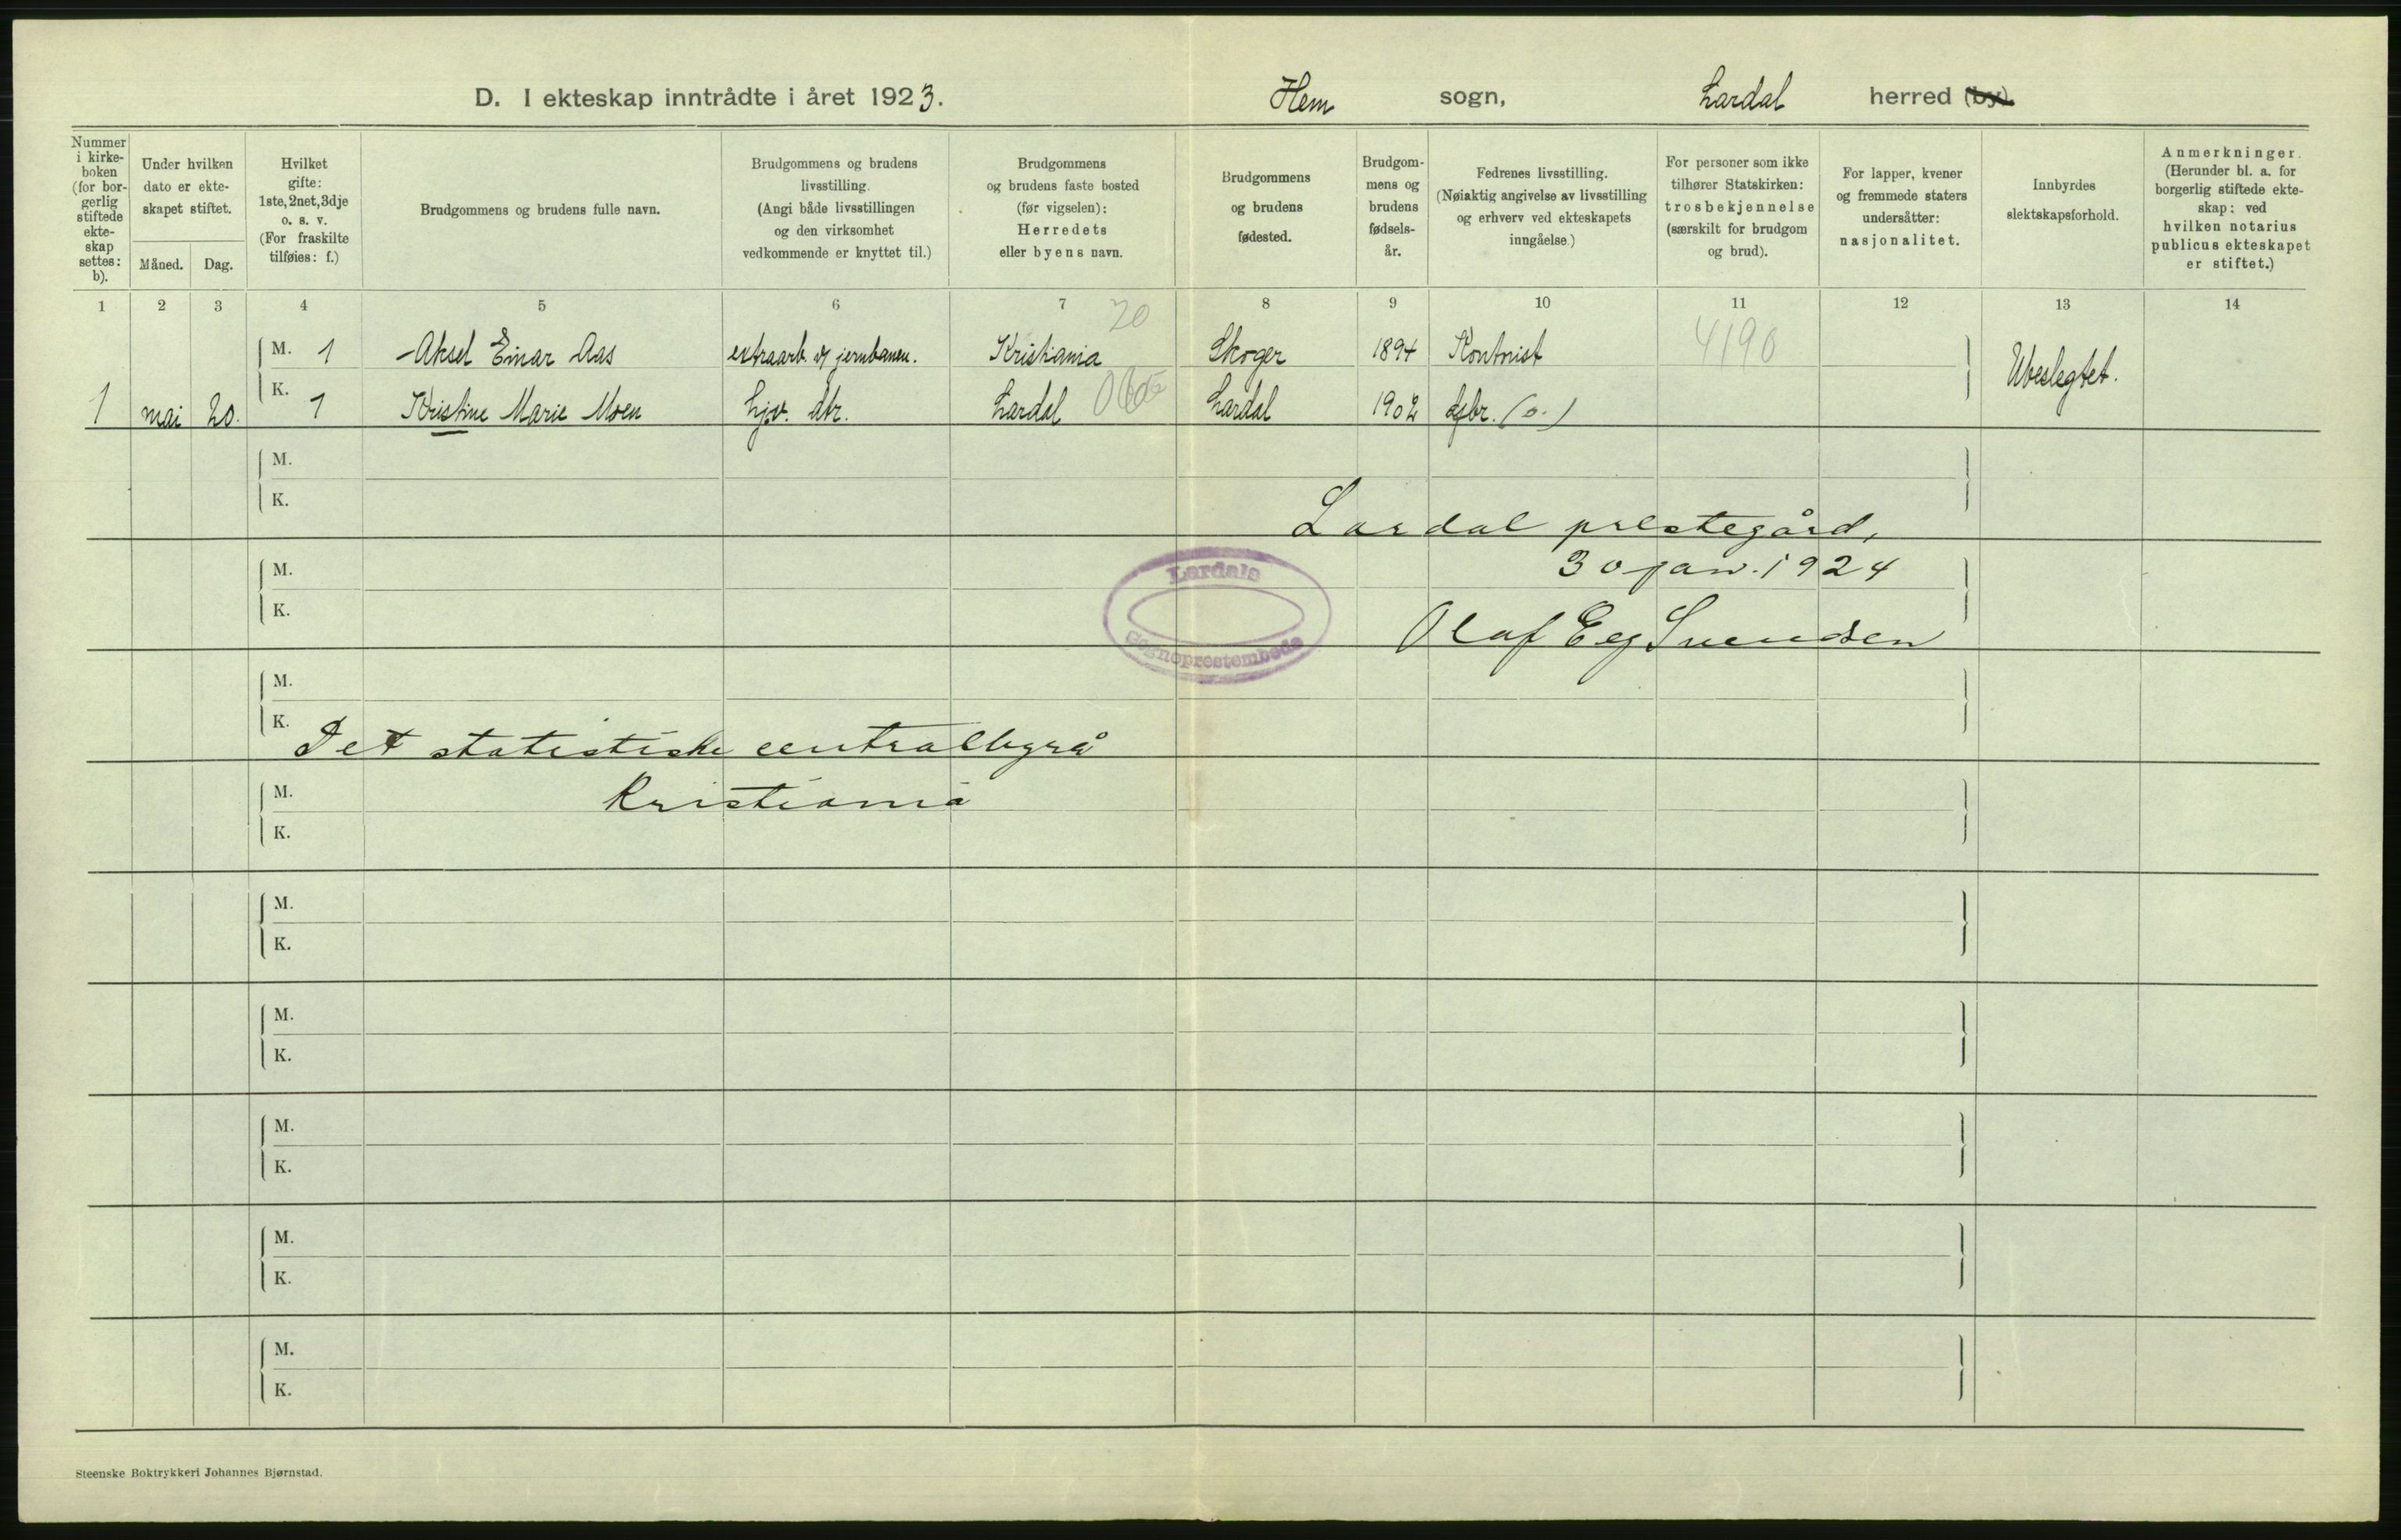 D. I ekteskap inntrådte i året 1923. Hem sogn, Lardal herred (by).
Nummer i kirkeboken (for borgerlig stiftede ekteskap settes: b).
Under hvilken dato er ekteskapet stiftet.
Måned. Dag.
Hvilket gifte: 1ste, 2net, 3dje o. s. v. (For fraskilte tilføies: f.)
Brudgommens og brudens fulle navn.
Brudgommens og brudens livsstilling. (Angi både livsstillingen og den virksomhet vedkommende er knyttet til.)
Brudgommens og brudens faste bosted (før vigselen): Herredets eller byens navn.
Brudgommens og brudens fødested.
Brudgommens og brudens fødselsår.
Fedrenes livsstilling. (Nøiaktig angivelse av livsstilling og erhverv ved ekteskapets inngåelse.)
For personer som ikke tilhører Statskirken: trosbekjennelse (særskilt for brudgom og brud).
For lapper, kvener og fremmede staters undersåtter: nasjonalitet.
Innbyrdes slektskapsforhold.
Anmerkninger. (Herunder bl. a. for borgerlig stiftede ekteskap: ved hvilken notarius publicus ekteskapet er stiftet.)
1 2 3 4 5 6 7 8 9 10 11 12 13 14
20
M. 1 Aksel Einar Aas extraarb. v/ jernbanen. Kristiania Skoger 1894 Kontorist 4190
Ubeslegtet.
1 mai 20. K. 1 Kristine Marie Moen hjv. dtr. Lardal Lardal 1902 gbr. (s.)
M.
K.
Lardal prestegård,
M. 30 jan. 1924
K. Olaf Eeg Svendsen
Lardals
Sogneprestembede
M.
K.
Det statistiske centralbyrå
M. Kristiania
K.
M.
K.
M.
K.
M.
K.
M.
K.
M.
K.
Steenske Boktrykkeri Johannes Bjørnstad.